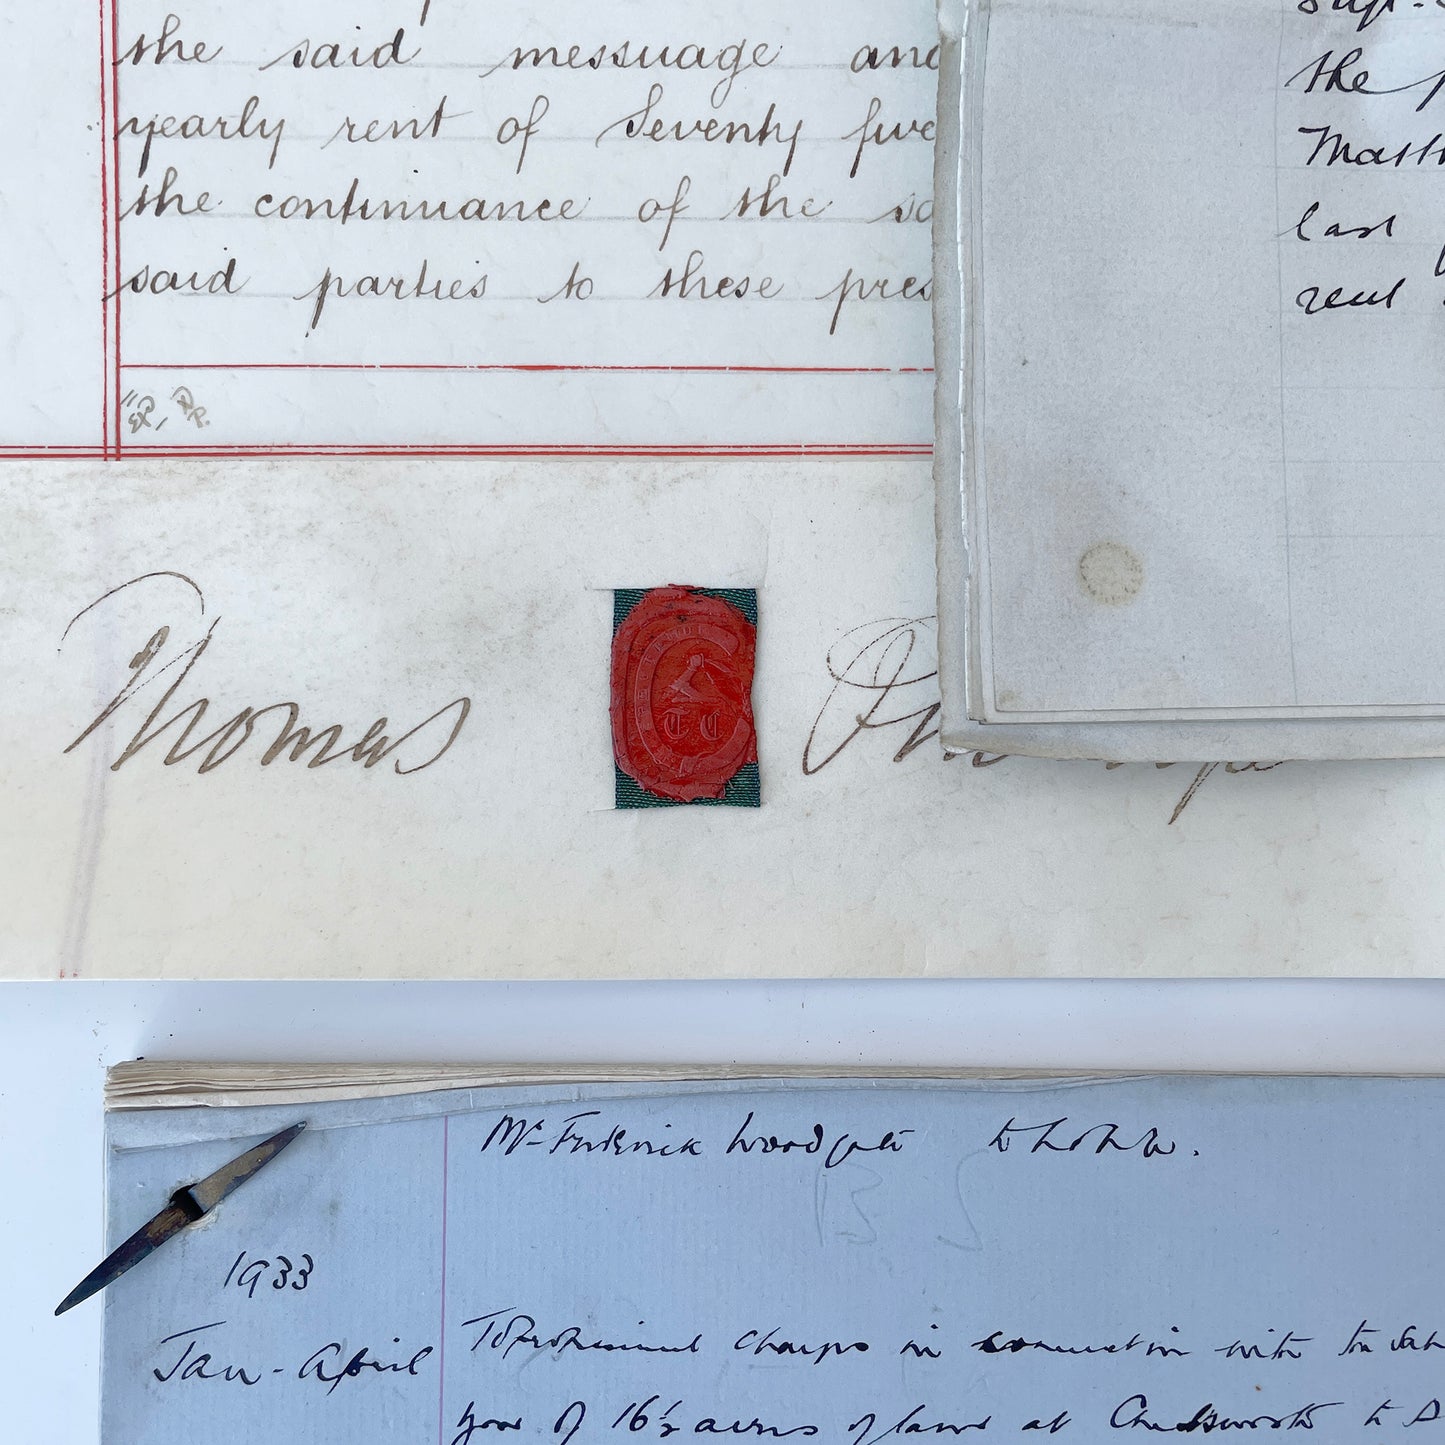 the said messuage and
yearly rent of Seventy five
the continuance of the sa
said parties to these pres
Sept.
the p
Matth
last
rent
Thomas
T C
Mr Frederick Woodgate
1933
Jan - April
To Professional charges in connection with the Sale
your of 16½ acres of land at Chelsworth to